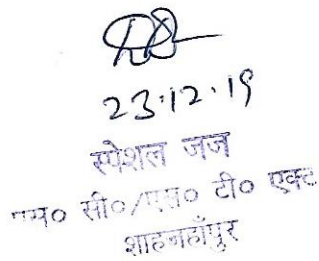 23.12.19
स्पेशल जज
एस० सी०/एस० टी० एक्ट
शाहजहाँपुर